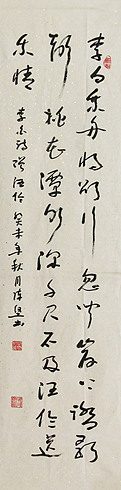 李白乘舟将欲行忽闻岸上踏歌
声桃花潭水深千尺不及汪伦送
我情
李白诗赠汪伦癸未年秋月陈书